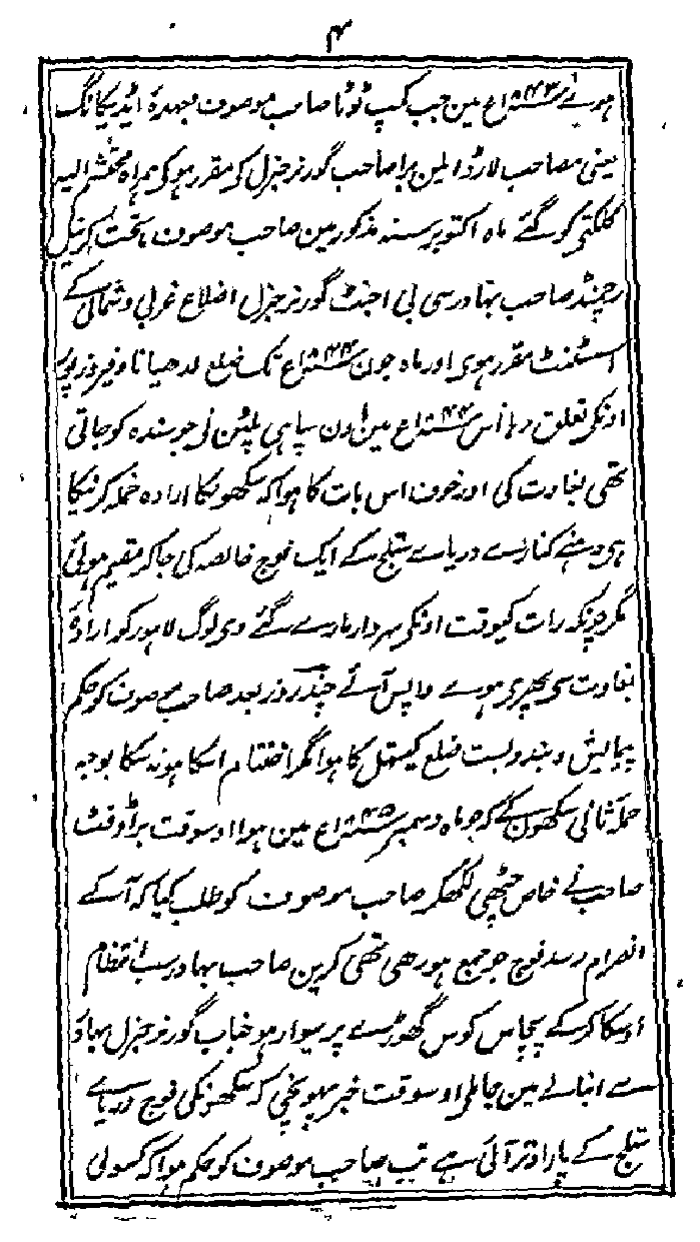 ۴
ہوئے سنہ ۱۸۴۳ع مین جب کمپ ٹوٹا صاحب موصوف بعہدۂ ایڈیکانگ
یعنی مصاحب لارڈ الن برا صاحب گورنر جنرل کو مقرر ہوکو ہمراہ محتشم الیہ
کلکتہ کو گئے ماہ اکتوبر سنہ مذکور مین صاحب موصوف تحت کرنیل
رچمنڈ صاحب بہادر سی بی اجنٹ گورنر جنرل اضلاع غربی و شمالی کے
اسسٹنٹ مقرر ہوی اور ماہ جون سنہ ۱۸۴۴ع تک ضلع لدھیانا و فیروزپور
اونکو تعلق رہا اس سنہ ۱۸۴۴ع مین اون سپاہی پلٹن نی جو سندہ کو جاتی
تھی بغاوت کی اور خوف اس بات کا ہوا کہ سکھونکا ارادہ حملہ کرنیکا
ہی دہنے کنارے دریاے ستلج کے ایک فوج خالصہ کی جاکر مقیم ہوئی
مگر چونکہ رات کیوقت اونکو سردار مارے گئے وی لوگ لاہور کو ارادۂ
بغاوت سی پھری ہوے واپس آئے چند روز بعد صاحب موصوف کو حکم
پیمایش و بندوبست ضلع کیتھل کا ہوا مگر اختتام اسکا ہونہ سکا بوجہ
حملہ ثانی سکھون کے کہ جو ماہ دسمبر سنہ ۱۸۴۵ع مین ہوا اوسوقت براڈفٹ
صاحب نے خاص چٹھی لکھکر صاحب موصوف کو طلب کیا کہ آکے
انصرام رسد فوج جو جمع ہو رھی تھی کرین صاحب بہادر سب انتظام
اوسکا کرکے پچاس کوس گھوڑے پر سوار ہو جناب گورنر جنرل بہادر
سے انبالے مین جا ملی اوسوقت خبر پہونچی کہ سکھونکی فوج دریاے
ستلج کے پار اوتر آئی ہے تب صاحب موصوف کو حکم ہوا کہ کسولی